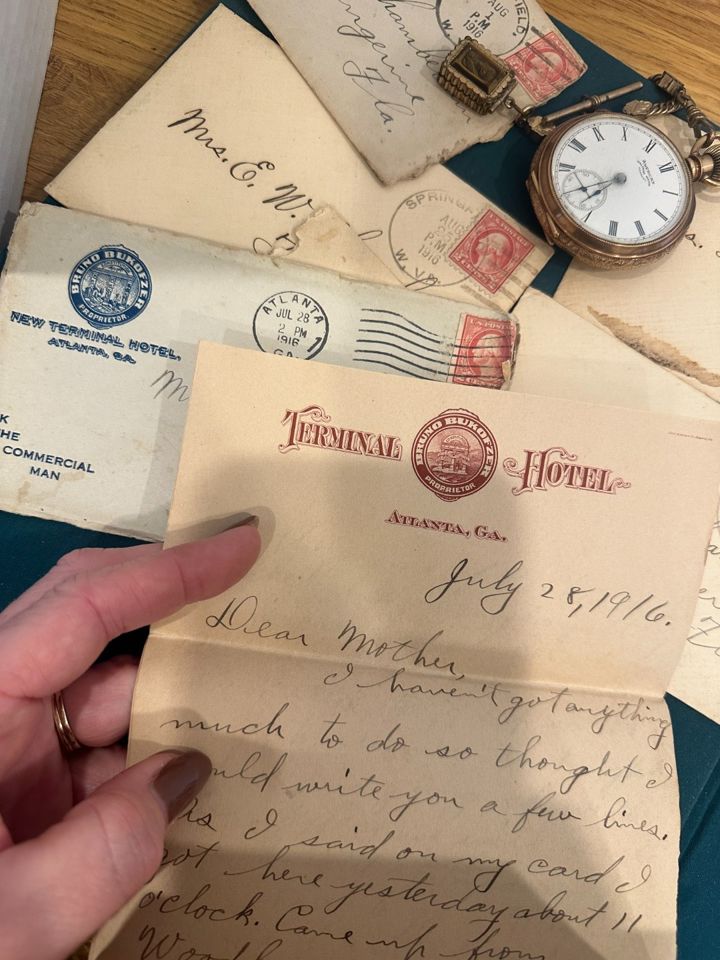 FIELD,
AUG
1
P.M
1916
W.
Fla.
Mrs. E. W.
SPRINGF
AUG
25
P.M.
1916
W. VA.
BRUNO BUKOFZER
PROPRIETOR
NEW TERMINAL HOTEL.
ATLANTA, GA.
ATLANTA
JUL 28
2 PM
1916
GA
1
M
K
HE
COMMERCIAL
MAN
TERMINAL HOTEL
BRUNO BUKOFZER
PROPRIETOR
ATLANTA, GA.
July 28, 1916.
Dear Mother,
I haven't got anything
much to do so thought I
uld write you a few lines.
As I said on my card I
got here yesterday about 11
o'clock. Came up from